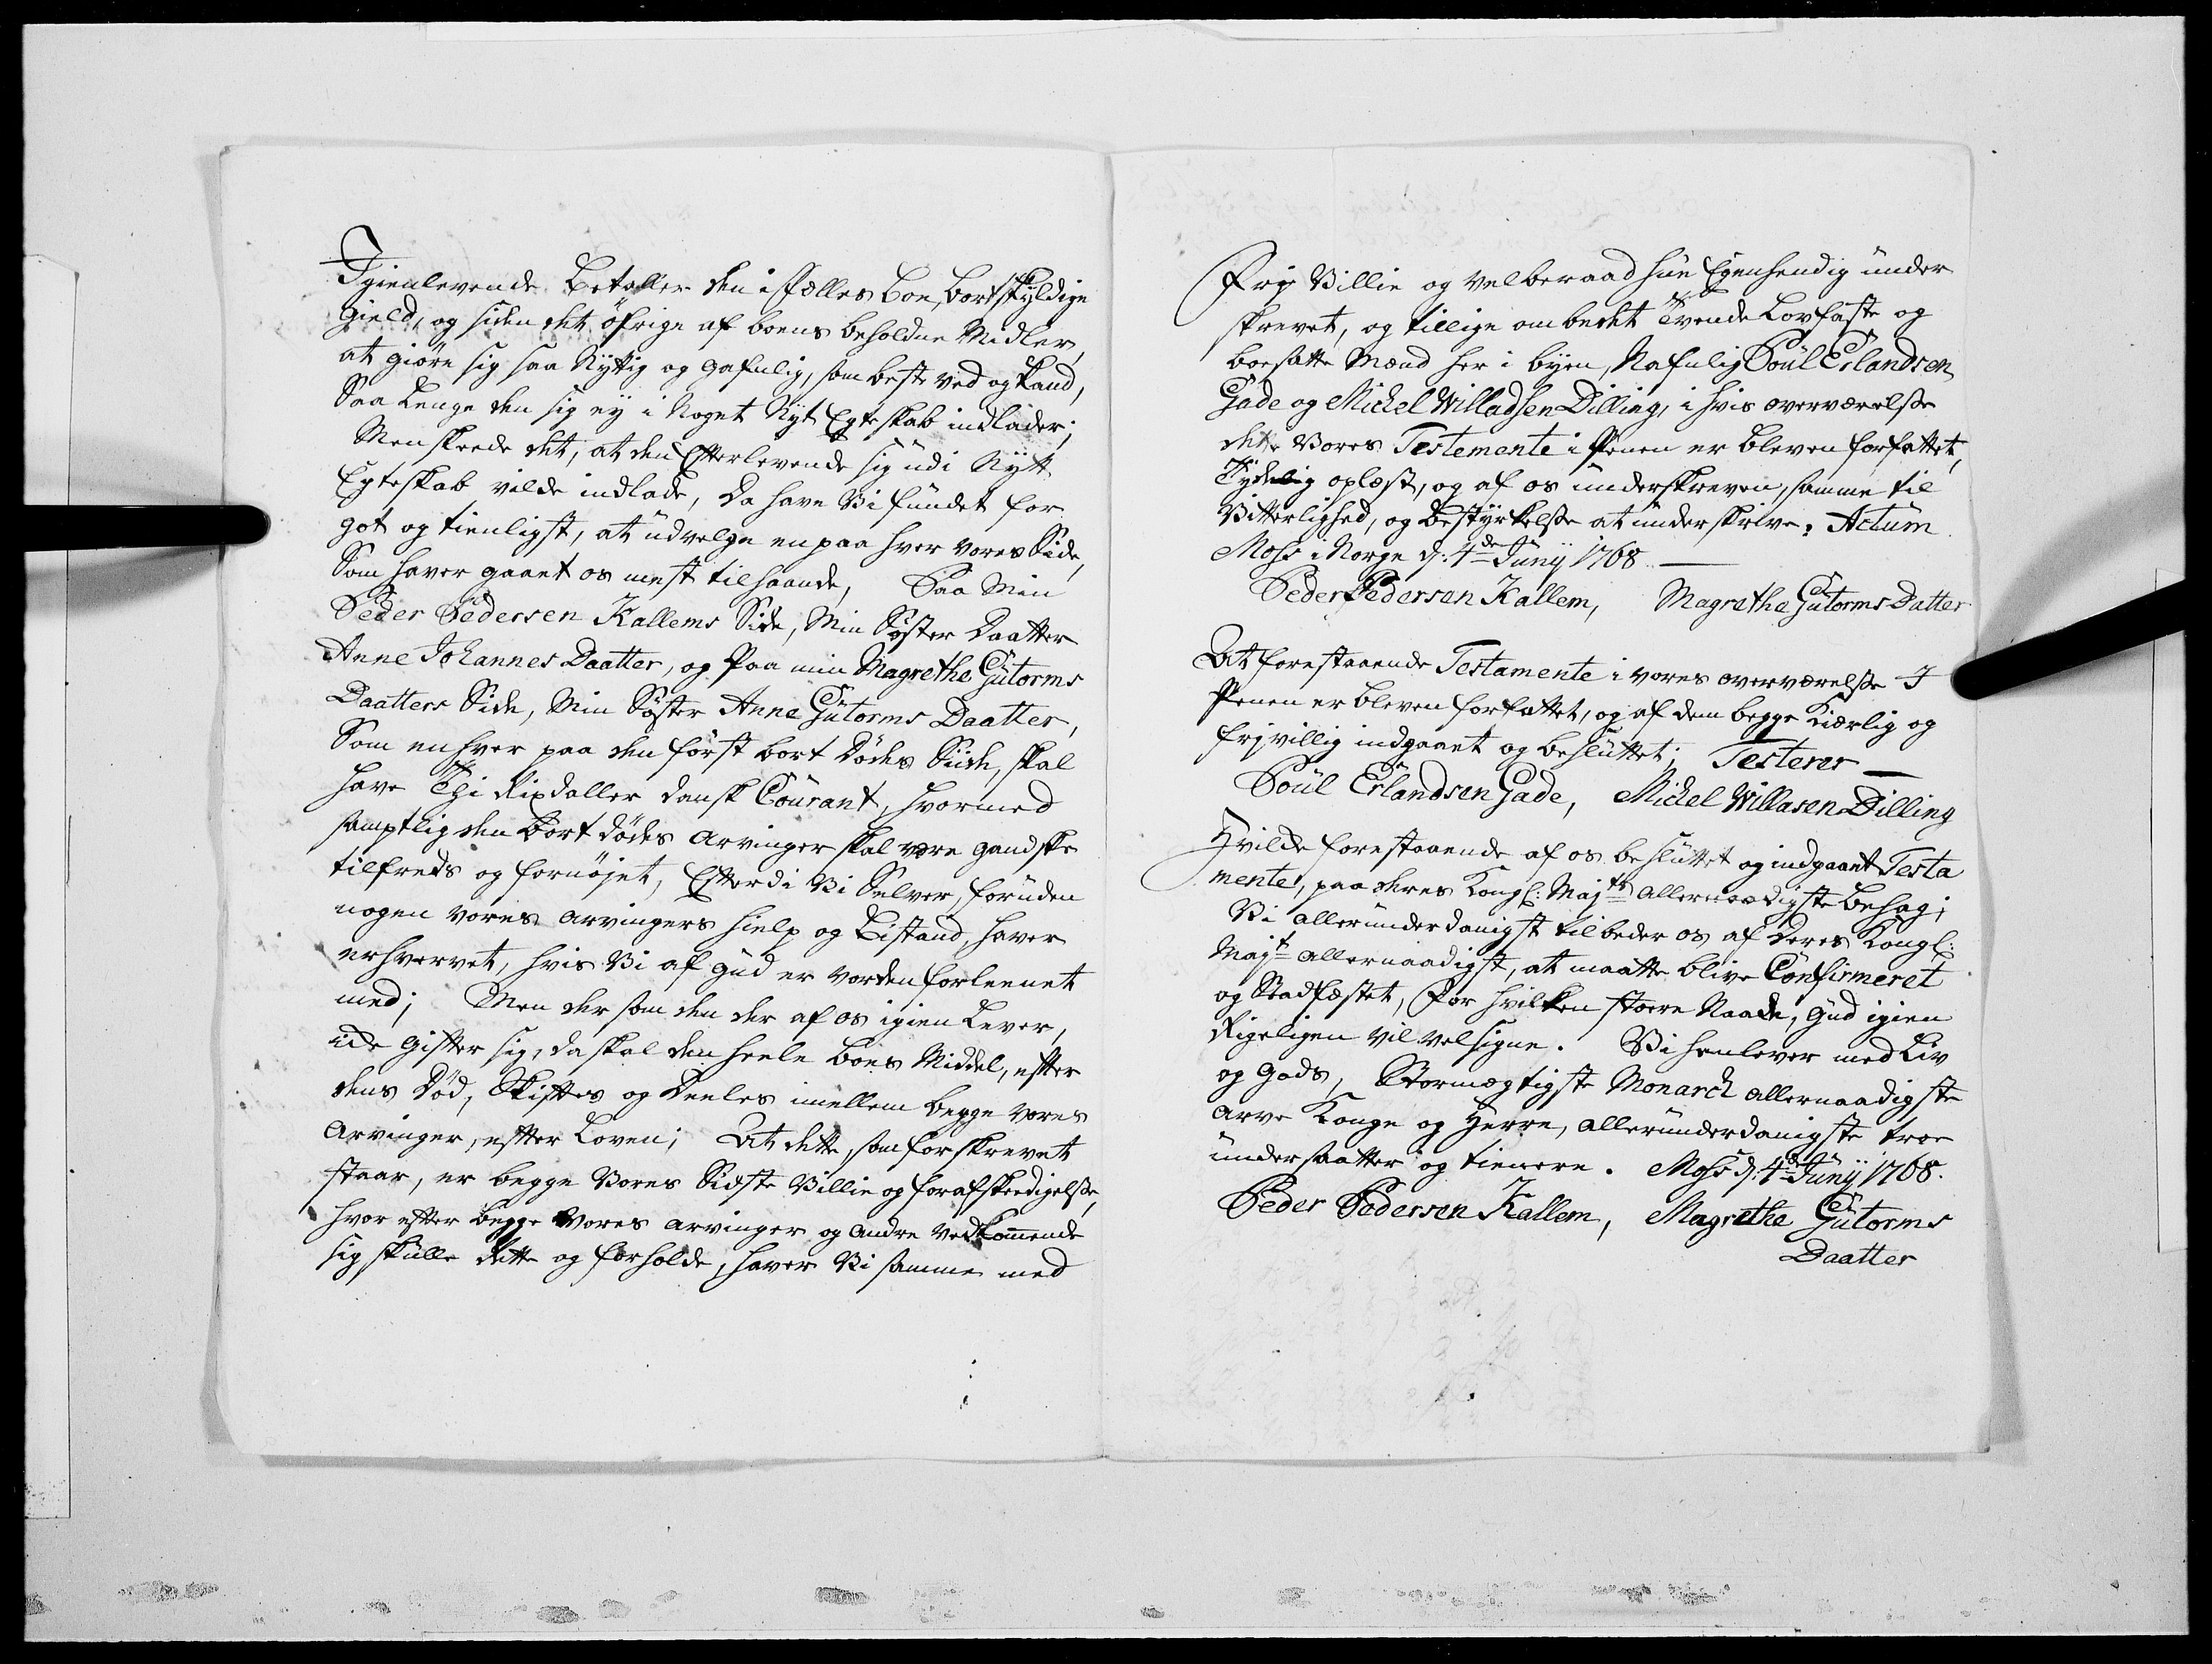 Igienlevende Betaller den i fælles boe, bortskyldige
gield, og siden det öfrige af boens beholdne Midler,
at giöre sig saa Nyttig og gafnlig, som best ved og kand,
Saa Lenge den sig ey i Noget Nyt Egteskab indlader;
Men skeede det, at den Efterlevende sig udi Nytt
Egteskab vilde indlade, Da have Vi fundet for
got og tienligst, at udvelge en paa hver vores Side,
Som haver gaaet os mest tilhaande, Paa Min
Peder Pedersen Kallems Side, Min Søster Daatter
Anne Johannes Daatter, og Paa min Magrethe Gutorms
Daatters Side, Min Søster Anne Gutorms Daatter,
Som en hver paa den först bort Dödes Siide, skal
have Thi Rixdaller dansk Courant, hvormed
samptlig den Bort dödes Arvinger skal være gandske
tilfreds og fornöjet, Efterdi Vi Selver, foruden
nogen vores Arvingers hielp og Bistand, haver
erhvervet, hvis Vi af Gud er vorden forleenet
med; Men der som den der af os igien Lever,
icke gifter sig, da skal den heele boes Middel, efter
dens Död, Skiftes og Deeles imellem begge vores
Arvinger, efter Loven; At dette, som for skrevet
staar, er begge Vores Sidste Villie og forafskeedigelse,
hvor efter begge vores Arvinger og andre vedkommende
sig skulle Rette og forholde, haver Vi samme med
Frj Villie og velberaad hue Egenhendig under
skrevet, og tillige ombedet Tvende Lovfaste og
boesatte Mænd her i byen, Nafnlig Poul Erlandsen
Gade og Michel Willadsen Dilling, i hvis overværelse
dette Vores Testemente i Penen er bleven forfattet,
Tydelig oplæst, og af os underskreven, samme til
Vitterlighed, og Bestyrkelse at underskrive. Actum
Moss i Norge d: 4de Junij 1768
Peder Pedersen Kallem, Magrethe Gutorms Datter
At forestaaende Testamente i vores overværelse I
Penen er bleven forfattet, og af dem begge kiærlig og
frjvillig indgaaet og besluttet; Testerer
Poul Erlandsen Gade, Michel Willasen Dilling
Hvilcke forestaaende af os besluttet og indgaaet Testa
mente, paa deres Kongl: Majts allernaadigste behag;
Vi allerunderdanigst tilbeder os af Deres Kongl:
Majt allernaadigst, at maatte blive Confirmeret
og Stadfæstet, For hvilken stoere Naade, Gud igien
Rigeligen vil velsigne. Vi henlever med Liv
og Gods, Stormægtigste Monarch allernaadigste
Arve Konge og Herre, allerunderdanigste troe
undersaatter og tienere. Moss d: 4de Junij 1768.
Peder Pedersen Kallem, Magrethe Gutorms
Daatter